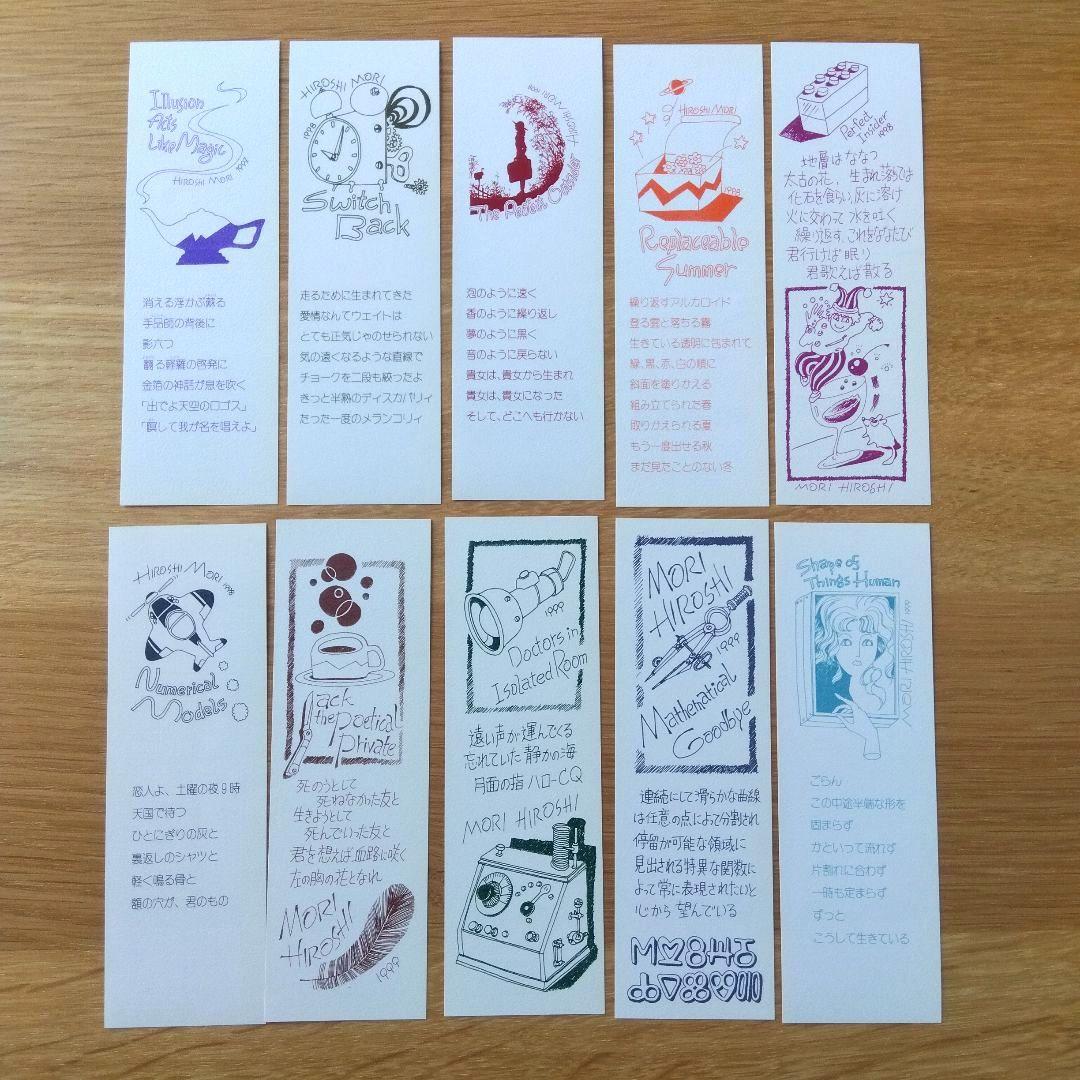 Illusion
Acts
Like Magic
HIROSHI MORI 1999
消える浮かぶ蘇る
手品師の背後に
影六つ
翻る軽羅の啓発に
金箔の神話が息を吹く
「出でよ天空のロゴス」
「戻して我が名を唱えよ」
HIROSHI MORI
1998
Switch
Back
走るために生まれてきた
愛情なんてウェイトは
とても正気じゃのせられない
気の遠くなるような直線で
チョークを二段も絞ったよ
きっと半熟のディスカバリィ
たった一度のメランコリィ
HIROSHI MORI 1998
The Perfect Outsider
泡のように速く
香のように繰り返し
夢のように黒く
音のように戻らない
貴女は、貴女から生まれ
貴女は、貴女になった
そして、どこへも行かない
HIROSHI MORI
1998
Replaceable
Summer
繰り返すアルカロイド
登る雲と落ちる霧
生きている透明に包まれて
緑、黒、赤、白の順に
斜面を塗りかえる
組み立てられた春
取りかえられる夏
もう一度出せる秋
まだ見たことのない冬
Perfect
Insider
1998
地層はななつ
太古の花、生まれ落ちては
化石を食らい、灰に溶け
火に交わって 水を吐く
繰り返す、これをななたび
君行けば 眠り
君歌えば 散る
MORI HIROSHI
HIROSHI MORI 1998
Numerical
Models
恋人よ、土曜の夜9時
天国で待つ
ひとにぎりの灰と
裏返しのシャツと
軽く鳴る骨と
額の穴が、君のもの
Jack
the poetical
Private
死のうとして
死ねなかった友と
生きようとして
死んでいった友と
君を想えば 血路に咲く
左の胸の花となれ
MORI
HIROSHI
1999
1999
Doctors in
Isolated Room
遠い声が運んでくる
忘れていた 静かの海
月面の指 ハロー CQ
MORI HIROSHI
MORI
HIROSHI
1999
Mathematical
Goodbye
連続にして滑らかな曲線
は任意の点によって分割され
停留が可能な領域に
見出される特異な関数に
よって常に表現されたいと
心から 望んでいる
Shape of
Things Human
1999
HIROSHI MORI
ごらん
この中途半端な形を
固まらず
かといって流れず
片割れに合わず
一時も定まらず
ずっと
こうして生きている